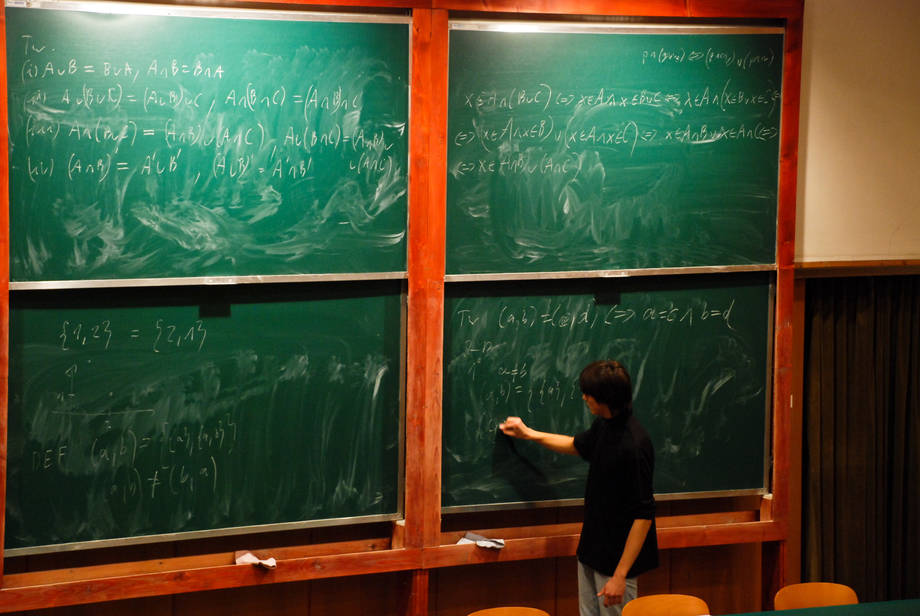 Tw.
(i) A∪B = B∪A, A∩B = B∩A
(ii) A∪(B∪C) = (A∪B)∪C, A∩(B∩C) = (A∩B)∩C
(iii) A∩(B∪C) = (A∩B)∪(A∩C), A∪(B∩C) = (A∩B)∪
∪(A∩C)
(iv) (A∩B)' = A'∪B', (A∪B)' = A'∩B'
x∈A∩(B∪C) ⇔ x∈A∧x∈B∪C ⇔ x∈A∧(x∈B∨x∈C)
⇔ (x∈A∧x∈B)∨(x∈A∧x∈C) ⇔ x∈A∩B∨x∈A∩C ⇔
⇔ x∈(A∩B)∪(A∩C)
{1,2} = {2,1}
DEF (a,b) = {{a},{a,b}}
(a,b) ≠ (b,a)
Tw (a,b) = (c,d) ⇔ a=c ∧ b=d
1° a=b
(a,b) = {{a},{